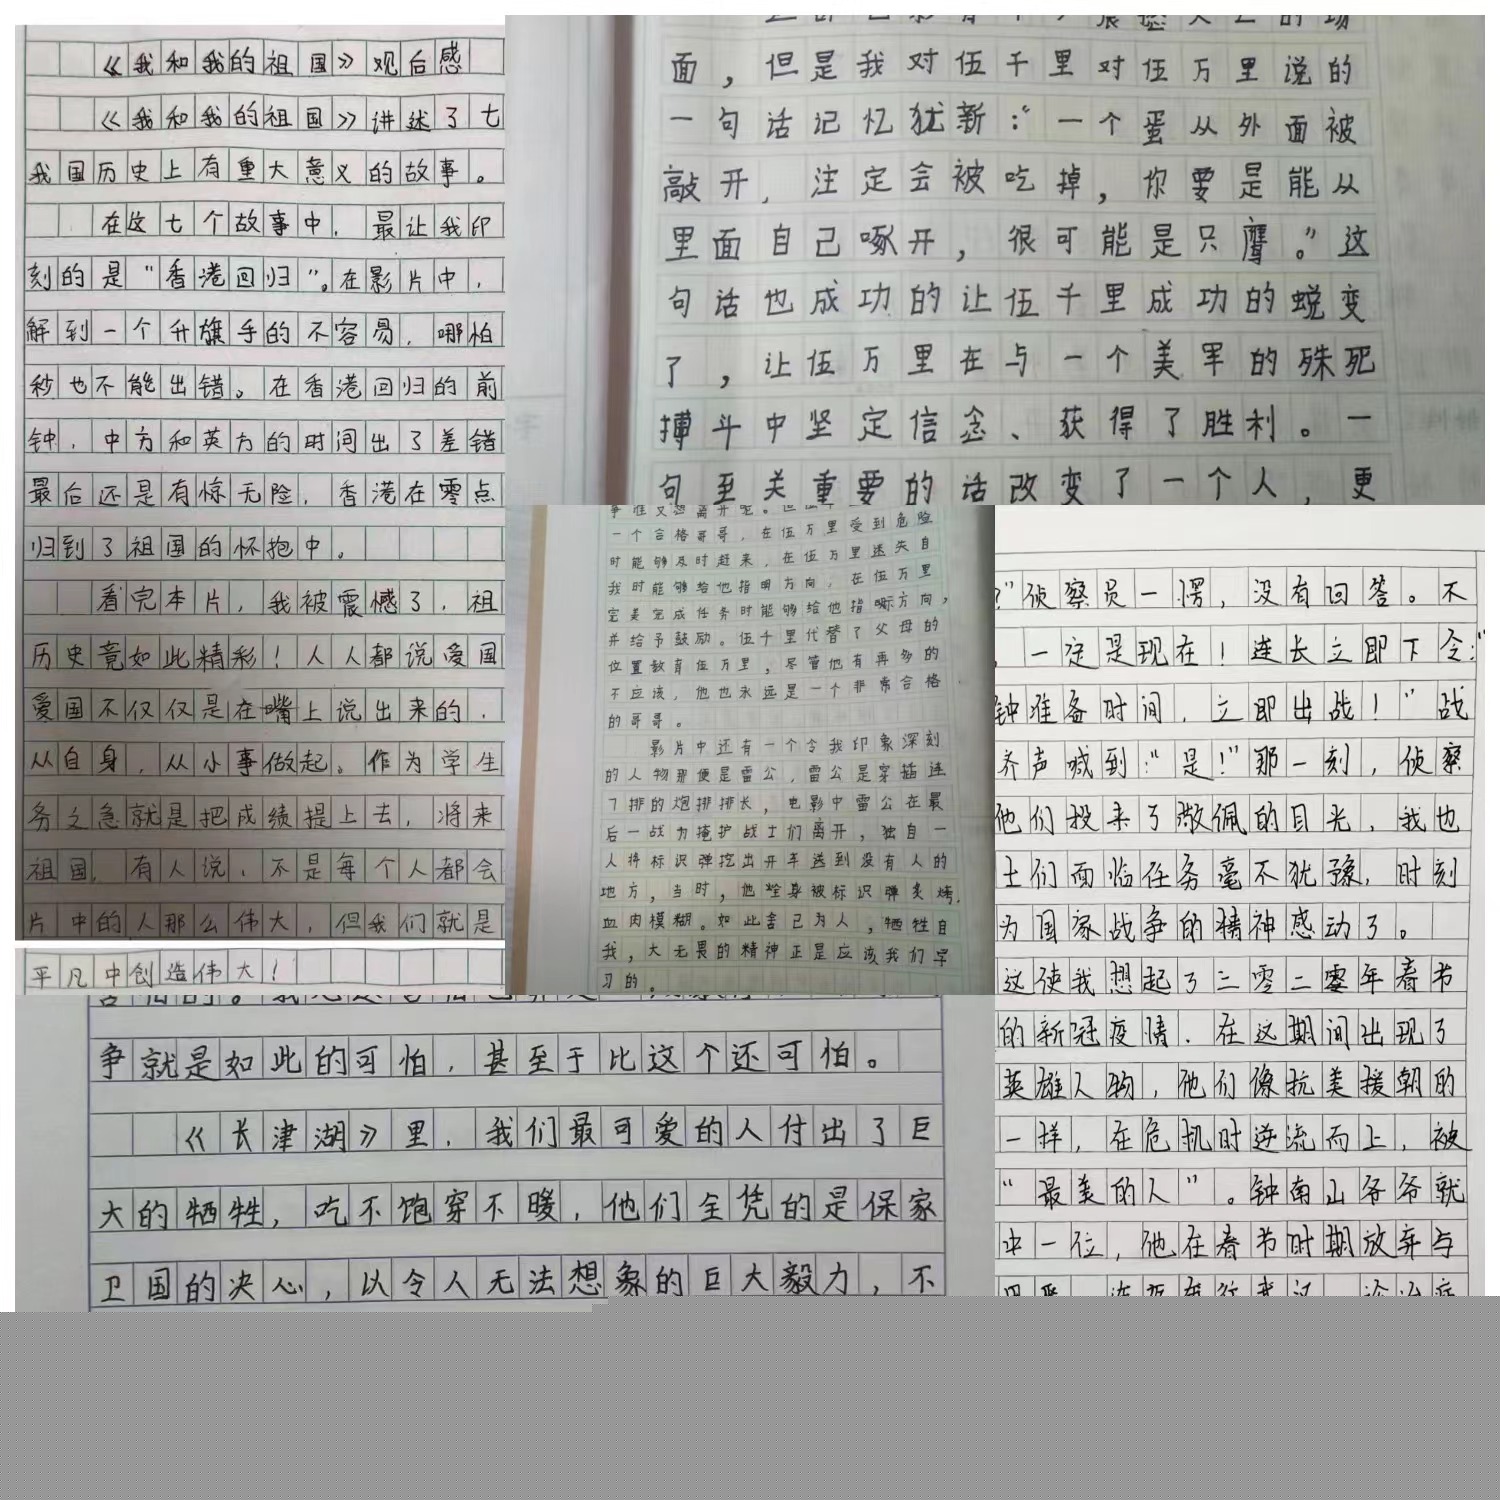 《我和我的祖国》观后感
《我和我的祖国》讲述了七
我国历史上有重大意义的故事。
在这七个故事中，最让我印
刻的是“香港回归”。在影片中，
解到一个升旗手的不容易，哪怕
秒也不能出错。在香港回归的前
钟，中方和英方的时间出了差错
最后还是有惊无险，香港在零点
归到了祖国的怀抱中。
看完本片，我被震憾了，祖
历史竟如此精彩！人人都说爱国
爱国不仅仅是在嘴上说出来的，
从自身，从小事做起。作为学生
务之急就是把成绩提上去，将来
祖国，有人说，不是每个人都会
片中的人那么伟大，但我们就是
平凡中创造伟大！
面，但是我对伍千里对伍万里说的
一句话记忆犹新：“一个蛋从外面被
敲开，注定会被吃掉，你要是能从
里面自己啄开，很可能是只鹰。”这
句话也成功的让伍千里成功的蜕变
了，让伍万里在与一个美军的殊死
搏斗中坚定信念、获得了胜利。一
句至关重要的话改变了一个人，更
一个合格哥哥，在伍万里受到危险
时能够及时赶来，在伍万里迷失自
我时能够给他指明方向，在伍万里
完美完成任务时能够给他指晰方向，
并给予鼓励。伍千里代替了父母的
位置教育伍万里，尽管他有再多的
不应该，他也永远是一个非常合格
的哥哥。
影片中还有一个令我印象深刻
的人物那便是雷公，雷公是穿插连
7排的炮排排长，电影中雷公在最
后一战为掩护战士们离开，独自一
人将标识弹挖出开车送到没有人的
地方，当时，他全身被标识弹炙烤，
血肉模糊。如此舍己为人，牺牲自
我，大无畏的精神正是应该我们学
习的。
？”侦察员一愣，没有回答。不
，一定是现在！连长立即下令：“
钟准备时间，立即出战！”战
齐声喊到：“是！”那一刻，侦察
他们投来了敬佩的目光，我也
士们面临任务毫不犹豫，时刻
为国家战争的精神感动了。
这使我想起了二零二零年春节
的新冠疫情，在这期间出现了
英雄人物，他们像抗美援朝的
一样，在危机时逆流而上，被
“最美的人”。钟南山爷爷就
中一位，他在春节时期放弃与
争就是如此的可怕，甚至于比这个还可怕。
《长津湖》里，我们最可爱的人付出了巨
大的牺牲，吃不饱穿不暖，他们全凭的是保家
卫国的决心，以令人无法想象的巨大毅力，不